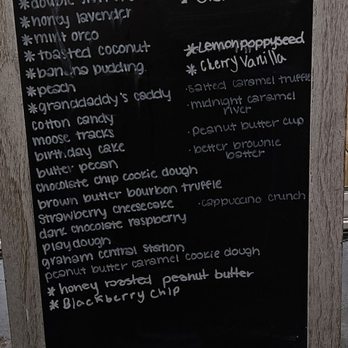 *honey lavender
*mint oreo
*toasted coconut
*banana pudding
*peach
*granddaddy's caddy
cotton candy
moose tracks
birthday cake
butter pecan
chocolate chip cookie dough
brown butter bourbon truffle
strawberry cheesecake
dark chocolate raspberry
playdough
graham central station
peanut butter caramel cookie dough
*honey roasted peanut butter
*Blackberry chip
*Lemon poppyseed
*Cherry Vanilla
·salted caramel truffle
·midnight caramel
river
·peanut butter cup
·better brownie
batter
·cappuccino crunch